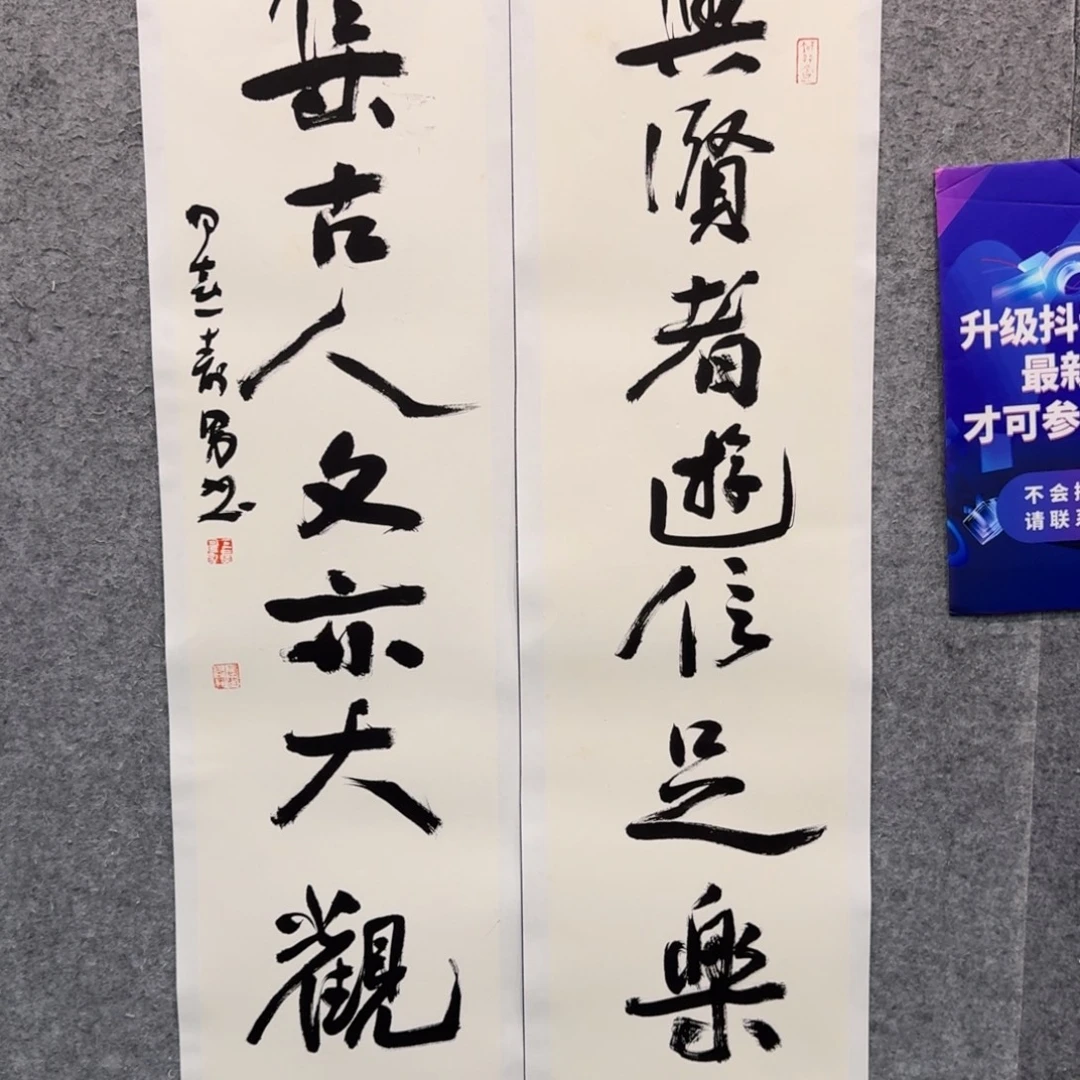 與賢者遊信足樂
集古人文亦大觀
升级抖
最新
才可参
不会
请联系